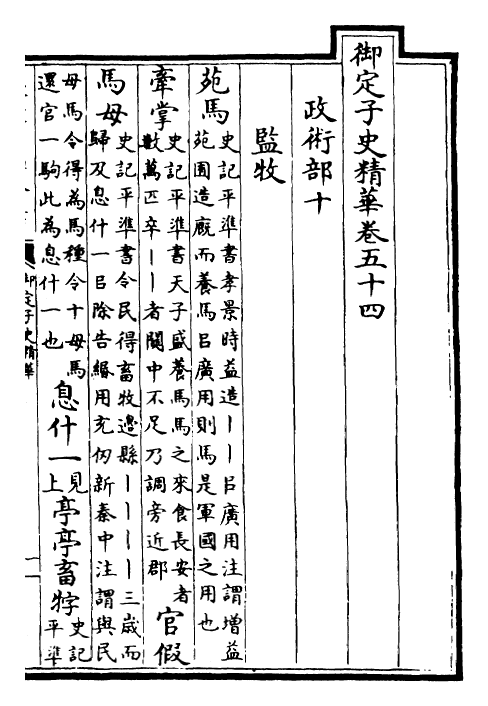 御定子史精華卷五十四
政術部十
監牧
苑馬史記平準書孝景時益造丨丨㠯廣用注謂增益
苑囿造廄而養馬㠯廣用則馬是軍國之用也
牽掌史記平準書天子盛養馬馬之來食長安者
數萬匹卒丨丨者關中不足乃調旁近郡官假
馬母史記平準書令民得畜牧邊縣丨丨丨丨三歲而
歸及息什一㠯除告緡用充仞新秦中注謂與民
母馬令得為馬種令十母馬
還官一駒此為息什一也息什一見上亭亭畜牸史記平準
御定子史精華